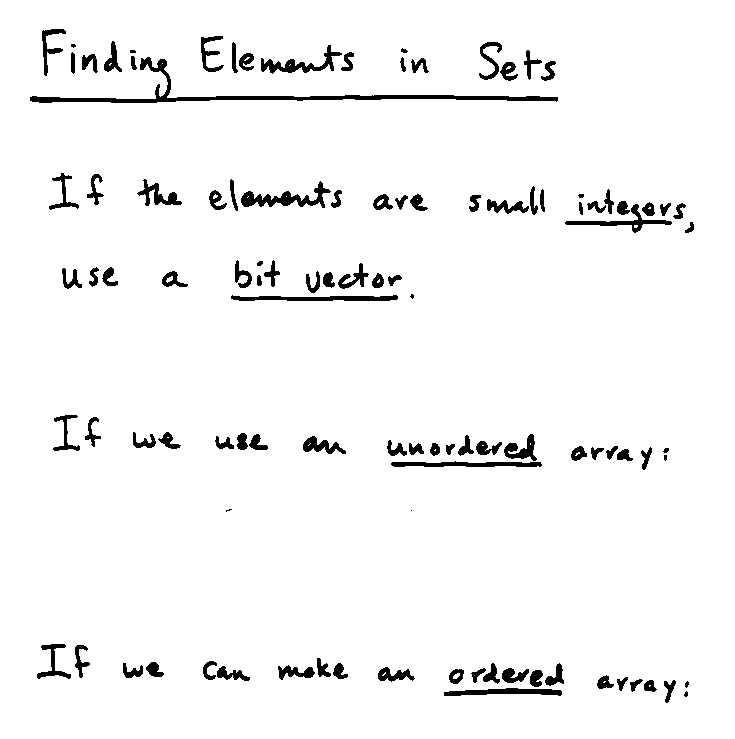 Finding Elements in Sets
If the elements are small integers,
use a bit vector.
If we use an unordered array:
If we can make an ordered array: